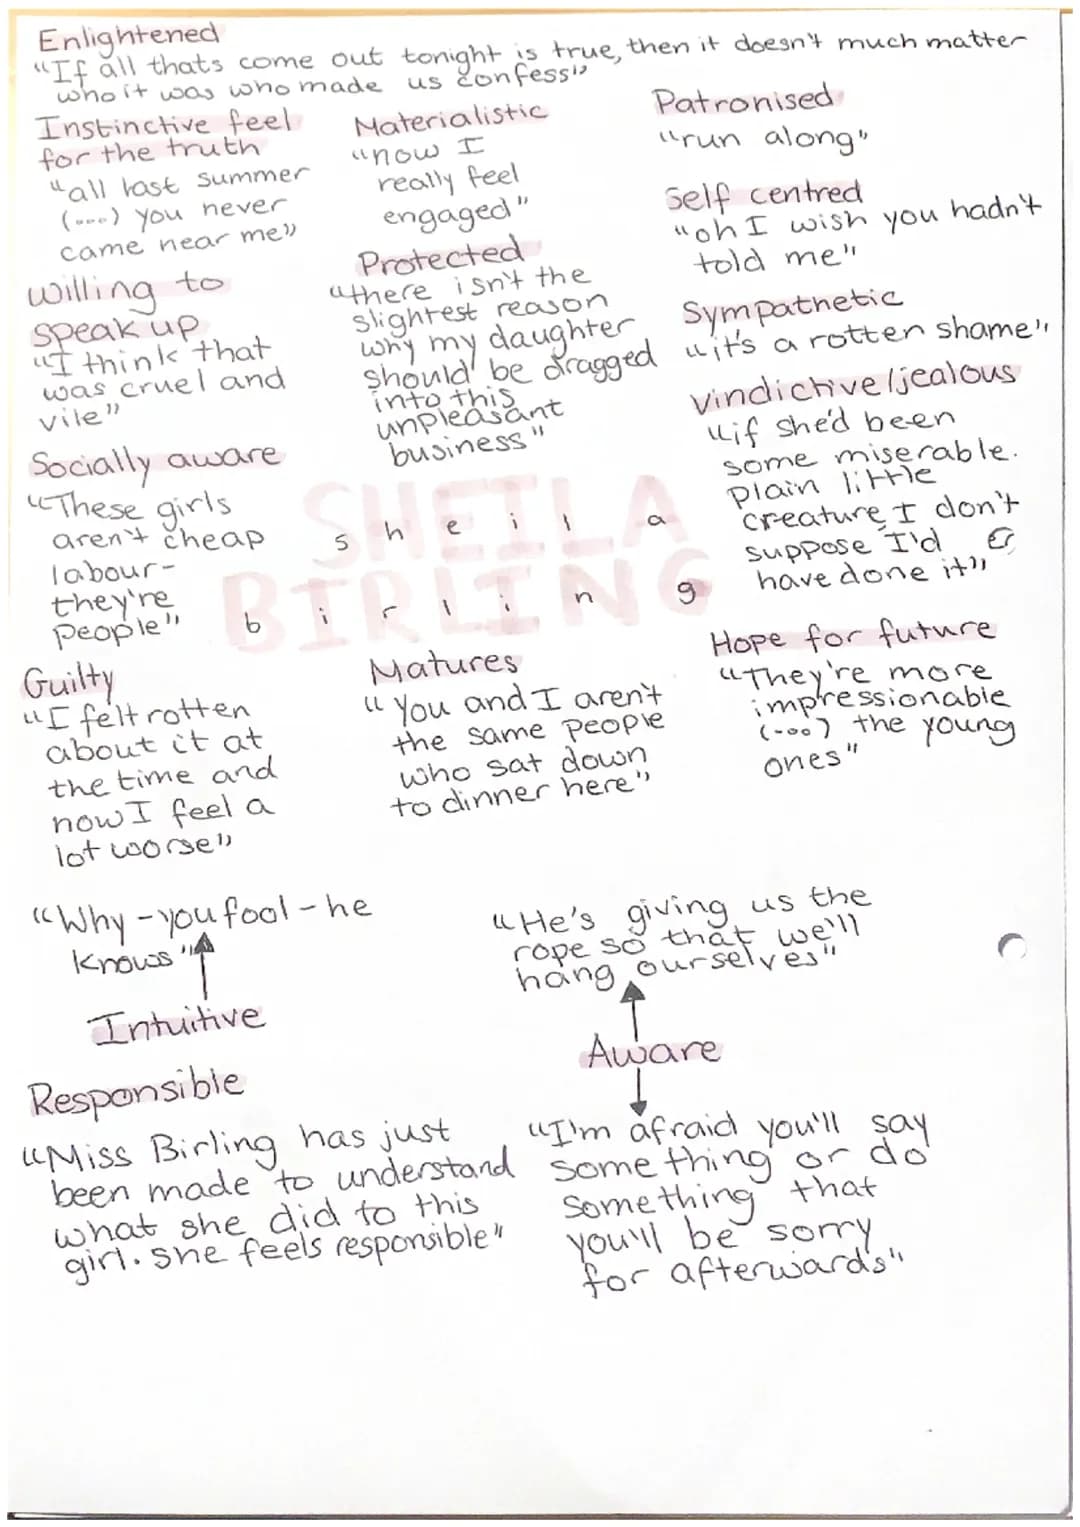 Enlightened
"If all thats come out tonight is true, then it doesn't much matter
who it was who made us confess"
Instinctive feel
for the truth
"all last summer
(...) you never
came near me"
Willing to
speak up
"I think that
was cruel and
vile"
Socially aware
"These girls
aren't cheap
labour-
they're
people"
Guilty
"I felt rotten
about it at
the time and
now I feel a
lot worse"
Materialistic
"now I
really feel
engaged"
Protected
"there isn't the
slightest reason
why my daughter
should be dragged
into this
unpleasant
business"
SHEILA
sheila
BIRLING
birling
Matures
"You and I aren't
the same people
who sat down
to dinner here"
Patronised
"run along"
Self centred
"oh I wish you hadn't
told me"
Sympathetic
"it's a rotten shame"
Vindictive/jealous
"if she'd been
some miserable.
plain little
creature, I don't
suppose I'd
have done it"
Hope for future
"They're more
impressionable
(...) the young
ones"
"Why-you fool-he
knows"
Intuitive
"He's giving us the
rope so that we'll
hang ourselves"
Aware
"I'm afraid you'll say
something or do
something that
you'll be sorry
for afterwards"
Responsible
"Miss Birling has just
been made to understand
what she did to this
girl. She feels responsible"